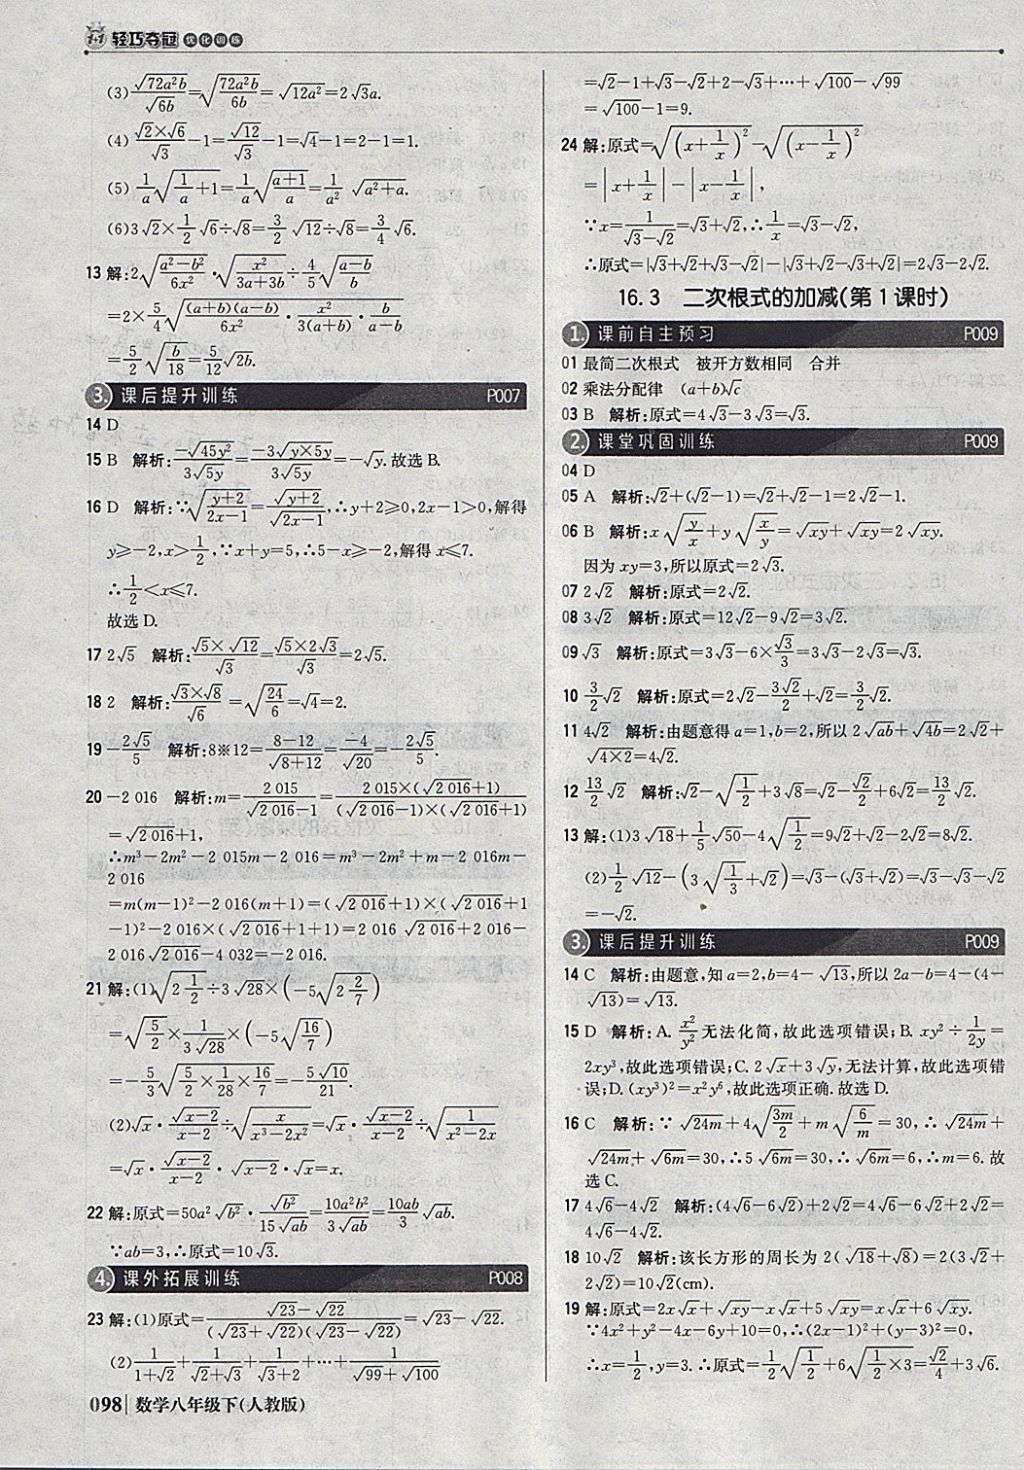 1+1 轻巧夺冠 优化训练
(3) \frac{\sqrt{72a^2b}}{\sqrt{6b}}=\sqrt{\frac{72a^2b}{6b}}=\sqrt{12a^2}=2\sqrt{3}a.
(4) \frac{\sqrt{2}×\sqrt{6}}{\sqrt{3}}-1=\frac{\sqrt{12}}{\sqrt{3}}-1=\sqrt{4}-1=2-1=1.
(5) \frac{1}{a}\sqrt{\frac{1}{a}+1}=\frac{1}{a}\sqrt{\frac{a+1}{a}}=\frac{1}{a^2}\sqrt{a^2+a}.
(6)3\sqrt{2}×\frac{1}{2}\sqrt{6}÷\sqrt{8}=\frac{3}{2}\sqrt{12}÷\sqrt{8}=\frac{3}{4}\sqrt{6}.
13 解:2\sqrt{\frac{a^2-b^2}{6x^2}}·\sqrt{\frac{x^2}{3a+3b}}÷\frac{4}{5}\sqrt{\frac{a-b}{b}}
=2×\frac{5}{4}\sqrt{\frac{(a+b)(a-b)}{6x^2}·\frac{x^2}{3(a+b)}·\frac{b}{a-b}}
=\frac{5}{2}\sqrt{\frac{b}{18}}=\frac{5}{12}\sqrt{2b}.
3. 课后提升训练 P007
14 D
15 B 解析:\frac{-\sqrt{45y^2}}{3\sqrt{5y}}=\frac{-3\sqrt{y×5y}}{3\sqrt{5y}}=-\sqrt{y}.故选 B.
16 D 解析:∵\sqrt{\frac{y+2}{2x-1}}=\frac{\sqrt{y+2}}{\sqrt{2x-1}},∴y+2≥0,2x-1>0,解得
y≥-2,x>\frac{1}{2},∵x+y=5,∴5-x≥-2,解得 x≤7.
∴\frac{1}{2}<x≤7.
故选 D.
17 2\sqrt{5} 解析:\frac{\sqrt{5}×\sqrt{12}}{\sqrt{3}}=\frac{\sqrt{5}×2\sqrt{3}}{\sqrt{3}}=2\sqrt{5}.
18 2 解析:\frac{\sqrt{3}×\sqrt{8}}{\sqrt{6}}=\sqrt{\frac{24}{6}}=\sqrt{4}=2.
19 -\frac{2\sqrt{5}}{5} 解析:8※12=\frac{8-12}{\sqrt{8+12}}=\frac{-4}{\sqrt{20}}=-\frac{2\sqrt{5}}{5}.
20 -2 016 解析:m=\frac{2 015}{\sqrt{2 016}-1}=\frac{2 015×(\sqrt{2 016}+1)}{(\sqrt{2 016}-1)×(\sqrt{2 016}+1)}
=\sqrt{2 016}+1,
∴m^3-2m^2-2 015m-2 016=m^3-2m^2+m-2 016m-
2 016
=m(m-1)^2-2 016(m+1)=(\sqrt{2 016}+1)×(\sqrt{2 016}+1
-1)^2-2 016×(\sqrt{2 016}+1+1)=2 016\sqrt{2 016}+2 016-
2 016\sqrt{2 016}-4 032=-2 016.
21 解:(1)\sqrt{2\frac{1}{2}}÷3\sqrt{28}×(-5\sqrt{2\frac{2}{7}})
=\sqrt{\frac{5}{2}}×\frac{1}{3\sqrt{28}}×(-5\sqrt{\frac{16}{7}})
=-\frac{5}{3}\sqrt{\frac{5}{2}×\frac{1}{28}×\frac{16}{7}}=-\frac{5\sqrt{10}}{21}.
(2)\sqrt{x}·\frac{\sqrt{x-2}}{x-2}÷\sqrt{\frac{x}{x^3-2x^2}}=\sqrt{x}·\frac{\sqrt{x-2}}{x-2}÷\sqrt{\frac{1}{x^2-2x}}
=\sqrt{x}·\frac{\sqrt{x-2}}{x-2}·\sqrt{x-2}·\sqrt{x}=x.
22 解:原式=50a^2\sqrt{b^2}·\frac{\sqrt{b^2}}{15\sqrt{ab}}=\frac{10a^2b^2}{3\sqrt{ab}}=\frac{10ab}{3}\sqrt{ab}.
∵ab=3,∴原式=10\sqrt{3}.
4. 课外拓展训练 P008
23 解:(1)原式=\frac{\sqrt{23}-\sqrt{22}}{(\sqrt{23}+\sqrt{22})(\sqrt{23}-\sqrt{22})}=\sqrt{23}-\sqrt{22}.
(2)\frac{1}{1+\sqrt{2}}+\frac{1}{\sqrt{2}+\sqrt{3}}+\frac{1}{\sqrt{3}+2}+…+\frac{1}{\sqrt{99}+\sqrt{100}}
098 数学八年级下(人教版)
=\sqrt{2}-1+\sqrt{3}-\sqrt{2}+2-\sqrt{3}+…+\sqrt{100}-\sqrt{99}
=\sqrt{100}-1=9.
24 解:原式=\sqrt{(x+\frac{1}{x})^2}-\sqrt{(x-\frac{1}{x})^2}
=|x+\frac{1}{x}|-|x-\frac{1}{x}|,
∵x=\frac{1}{\sqrt{3}-\sqrt{2}}=\sqrt{3}+\sqrt{2},∴\frac{1}{x}=\sqrt{3}-\sqrt{2},
∴原式=|\sqrt{3}+\sqrt{2}+\sqrt{3}-\sqrt{2}|-|\sqrt{3}+\sqrt{2}-\sqrt{3}+\sqrt{2}|=2\sqrt{3}-2\sqrt{2}.
16.3 二次根式的加减(第1课时)
1. 课前自主预习 P009
01 最简二次根式 被开方数相同 合并
02 乘法分配律 (a+b)\sqrt{c}
03 B 解析:原式=4\sqrt{3}-3\sqrt{3}=\sqrt{3}.
2. 课堂巩固训练 P009
04 D
05 A 解析:\sqrt{2}+(\sqrt{2}-1)=\sqrt{2}+\sqrt{2}-1=2\sqrt{2}-1.
06 B 解析:x\sqrt{\frac{y}{x}}+y\sqrt{\frac{x}{y}}=\sqrt{xy}+\sqrt{xy}=2\sqrt{xy}.
因为 xy=3,所以原式=2\sqrt{3}.
07 2\sqrt{2} 解析:原式=2\sqrt{2}.
08 3\sqrt{2} 解析:原式=12\sqrt{2}-9\sqrt{2}=3\sqrt{2}.
09 \sqrt{3} 解析:原式=3\sqrt{3}-6×\frac{\sqrt{3}}{3}=3\sqrt{3}-2\sqrt{3}=\sqrt{3}.
10 \frac{3}{2}\sqrt{2} 解析:原式=2\sqrt{2}-\frac{3\sqrt{2}}{2}+\sqrt{2}=\frac{3}{2}\sqrt{2}.
11 4\sqrt{2} 解析:由题意得 a=1,b=2,所以 2\sqrt{ab}+\sqrt{4b}=2\sqrt{2}+
\sqrt{4×2}=4\sqrt{2}.
12 \frac{13}{2}\sqrt{2} 解析:\sqrt{2}-\sqrt{\frac{1}{2}}+3\sqrt{8}=\sqrt{2}-\frac{\sqrt{2}}{2}+6\sqrt{2}=\frac{13}{2}\sqrt{2}.
13 解:(1)3\sqrt{18}+\frac{1}{5}\sqrt{50}-4\sqrt{\frac{1}{2}}=9\sqrt{2}+\sqrt{2}-2\sqrt{2}=8\sqrt{2}.
(2)\frac{1}{2}\sqrt{12}-(3\sqrt{\frac{1}{3}}+\sqrt{2})=\sqrt{3}-(\sqrt{3}+\sqrt{2})=\sqrt{3}-\sqrt{3}-\sqrt{2}
=-\sqrt{2}.
3. 课后提升训练 P009
14 C 解析:由题意,知 a=2,b=4-\sqrt{13},所以 2a-b=4-(4-
\sqrt{13})=\sqrt{13}.
15 D 解析:A.\frac{x^2}{y^2}无法化简,故此选项错误;B. xy^2÷\frac{1}{2y}=
2xy^3,故此选项错误;C. 2\sqrt{x}+3\sqrt{y},无法计算,故此选项错
误;D. (xy^3)^2=x^2y^6,故此选项正确. 故选 D.
16 C 解析:∵\sqrt{24m}+4\sqrt{\frac{3m}{2}}+m\sqrt{\frac{6}{m}}=30,∴\sqrt{24m}+
\sqrt{24m}+\sqrt{6m}=30,∴5\sqrt{6m}=30,∴\sqrt{6m}=6,∴m=6. 故
选 C.
17 4\sqrt{6}-4\sqrt{2} 解析:(4\sqrt{6}-6\sqrt{2})+2\sqrt{2}=4\sqrt{6}-6\sqrt{2}+2\sqrt{2}=
4\sqrt{6}-4\sqrt{2}.
18 10\sqrt{2} 解析:该长方形的周长为 2(\sqrt{18}+\sqrt{8})=2(3\sqrt{2}+
2\sqrt{2})=10\sqrt{2}(cm).
19 解:原式=2x\sqrt{x}+\sqrt{xy}-x\sqrt{x}+5\sqrt{xy}=x\sqrt{x}+6\sqrt{xy}.
∵4x^2+y^2-4x-6y+10=0,∴(2x-1)^2+(y-3)^2=0,
∴x=\frac{1}{2},y=3. ∴原式=\frac{1}{2}\sqrt{\frac{1}{2}}+6\sqrt{\frac{1}{2}×3}=\frac{\sqrt{2}}{4}+3\sqrt{6}.